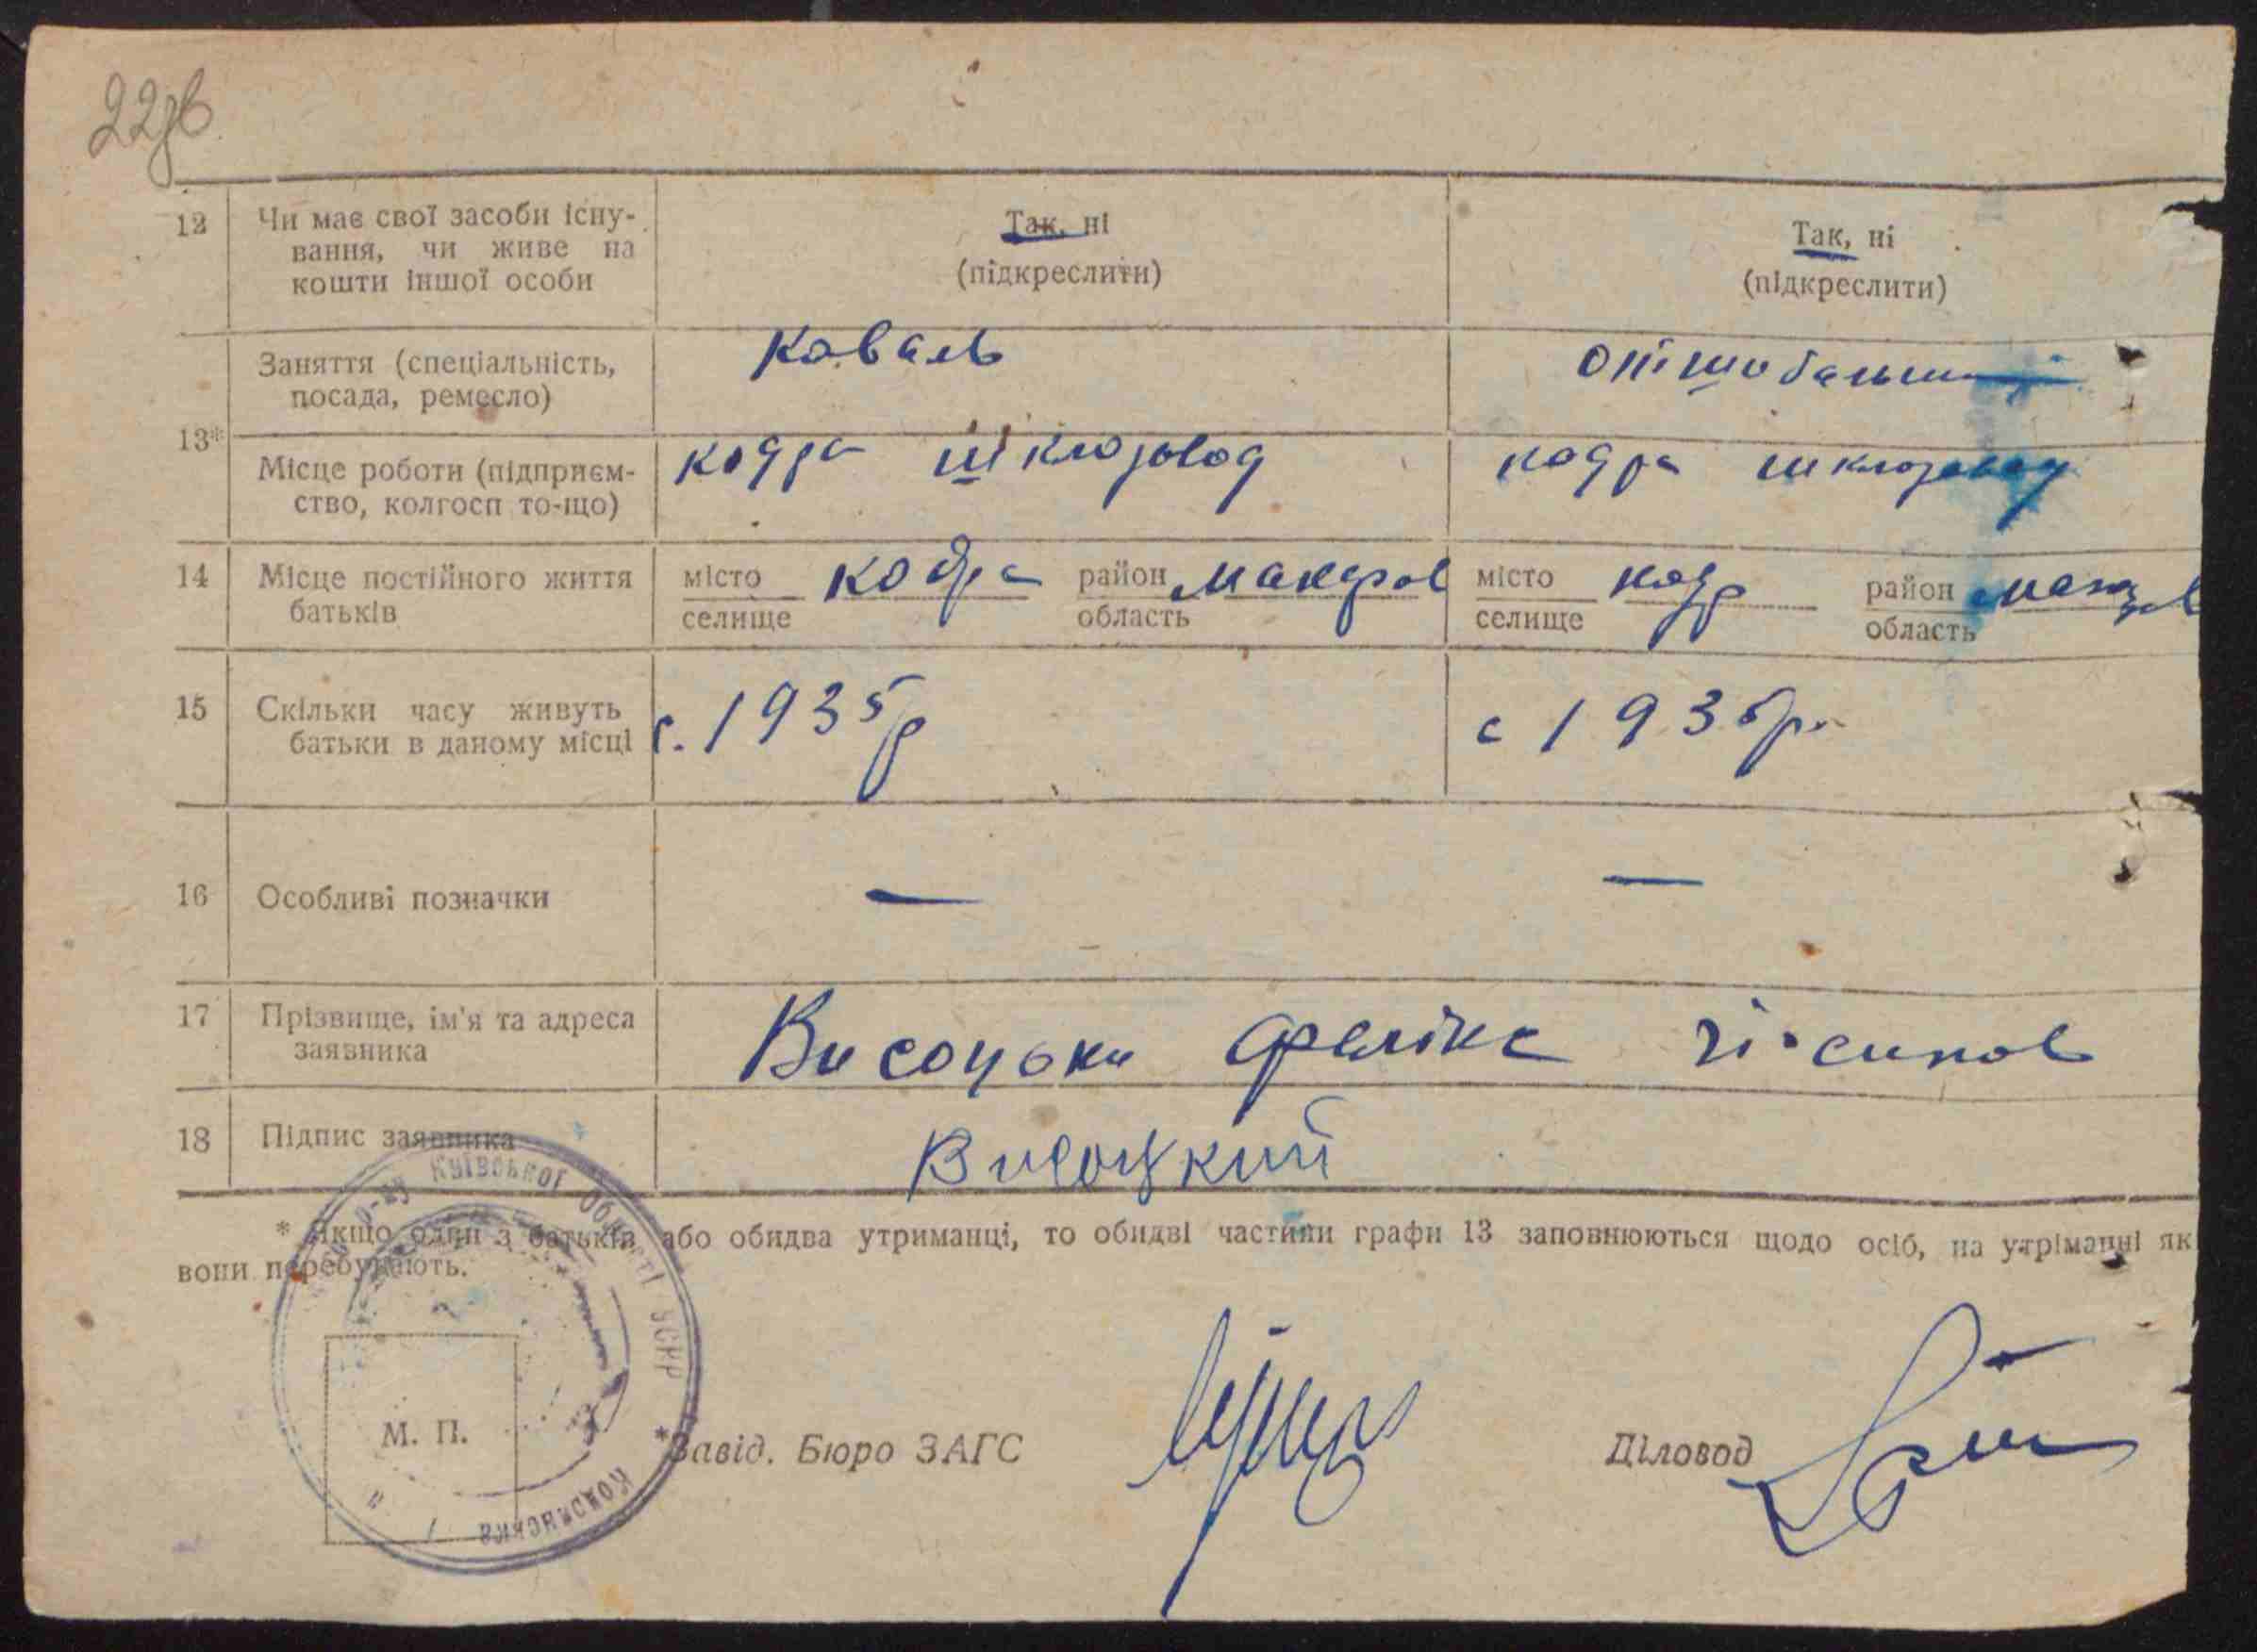 22зв
12 Чи має свої засоби існу- Так, ні Так, ні
вання, чи живе на (підкреслити) (підкреслити)
кошти іншої особи
Заняття (спеціальність, Коваль
посада, ремесло)
13*
Місце роботи (підприєм- кодра шклозовод кодра шклозавод
ство, колгосп то-що)
14 Місце постійного життя місто кодра район макаров місто кодр район макаров
батьків селище область селище область
15 Скільки часу живуть с. 1935р с 1935р.
батьки в даному місці
16 Особливі позначки — —
17 Прізвище, ім'я та адреса Висоцьки Фелікс
заявника
18 Підпис заявника Висоцкий
* Якщо один з батьків або обидва утриманці, то обидві частини графи 13 заповнюються щодо осіб, на утріманні як
вони перебувають.
р-ну Київської Області УСРР
Кодрянська
М. П. *Завід. Бюро ЗАГС Діловод